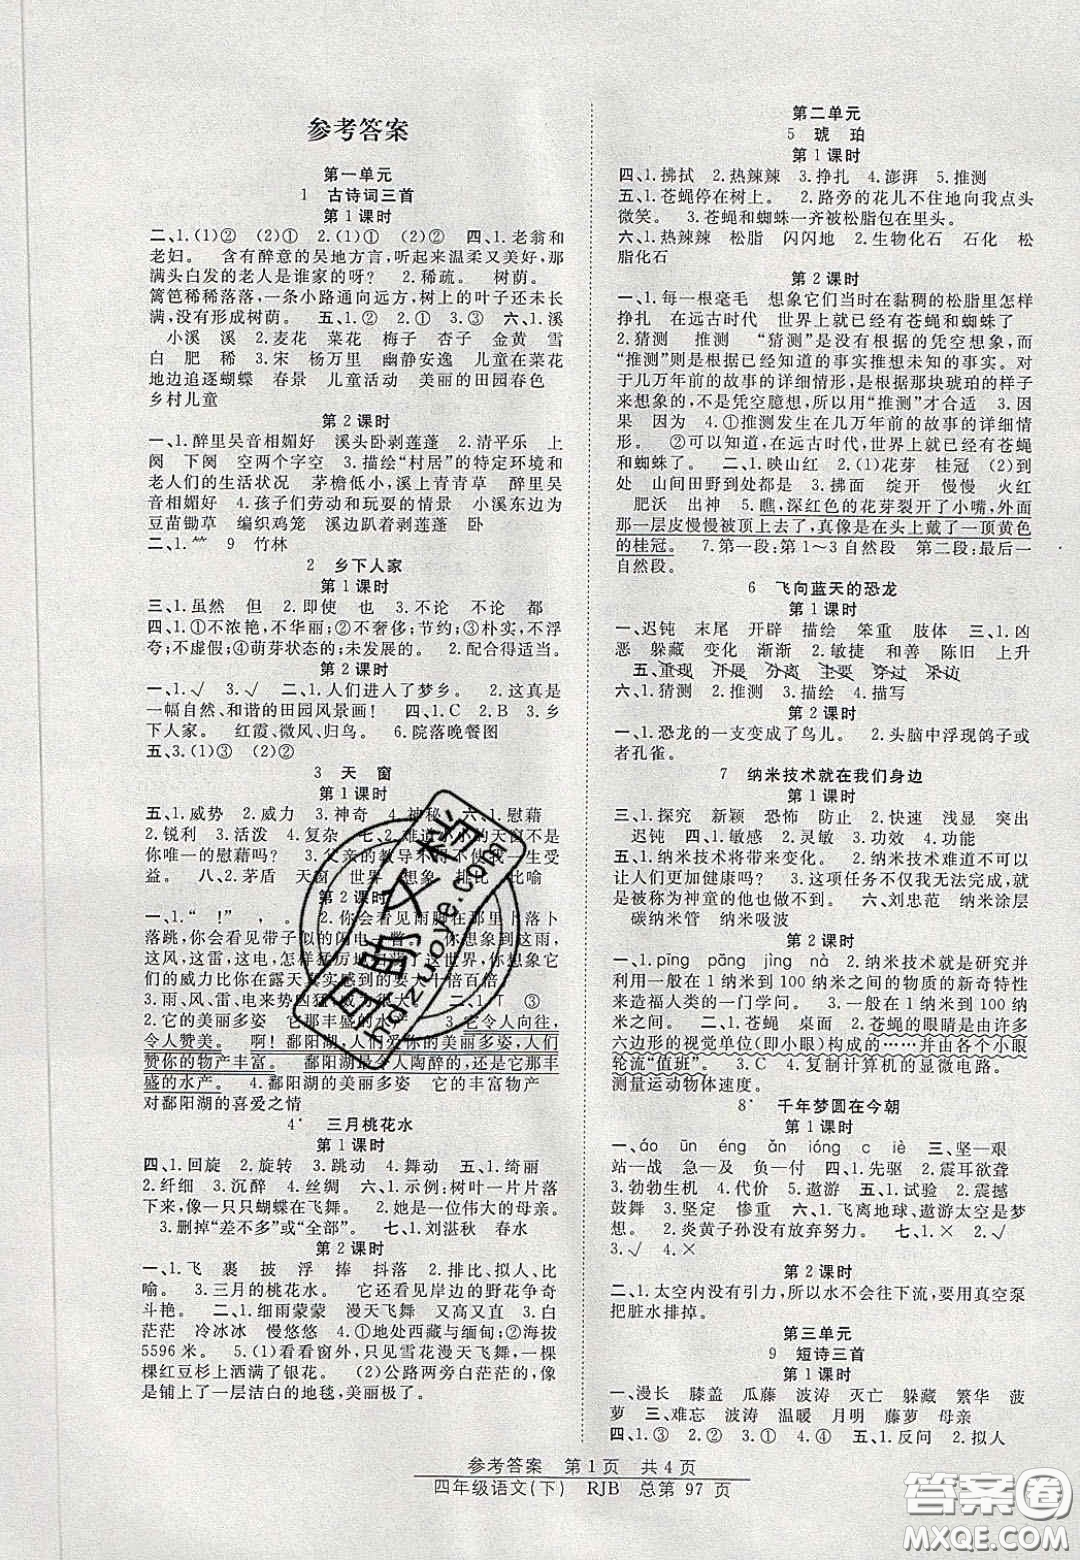 参考答案
第一单元
1 古诗词三首
第1课时
二、1.(1)② (2)① 2.(1)① (2)② 四、1.老翁和
老妇。 含有醉意的吴地方言,听起来温柔又美好,那
满头白发的老人是谁家的呀? 2.稀疏。 树荫。
篱笆稀稀落落,一条小路通向远方,树上的叶子还在生
长,没有形成树荫。 五、1.② 2.① 3.③ 六、1.溪
小溪 溪 2.麦花 菜花 梅子 杏子 金黄 雪
白 肥 稀 3.宋 杨万里 幽静安逸 儿童在菜花
地边追逐蝴蝶 春景 儿童活动 美丽的田园春色
乡村儿童
第2课时
一、1.醉里吴音相媚好 溪头卧剥莲蓬 2.清平乐 上
阕 下阕 空两个字空 3.描绘“村居”的特定环境和
老人们的生活状况 茅檐低小,溪上青青草 醉里吴
音相媚好 4.孩子们劳动和玩耍的情景 小溪东边为
豆苗锄草 编织鸡笼 溪边趴着剥莲蓬 卧
二、1.⺮ 9 竹林
2 乡下人家
第1课时
三、1.虽然 但 2.即使 也 3.不论 不论 都
四、1.①不浓艳,不华丽;②不奢侈;节约;③朴实,不浮
夸;不虚假;④萌芽状态的;未发展的。 2.配合得适当。
第2课时
一、1.√ 3.√ 二、1.人们进入了梦乡。 2.这真是
一幅自然、和谐的田园风景画! 四、1.C 2.B 3.乡
下人家。 红霞、微风、归鸟。 6.院落晚餐图
五、3.(1)③ (2)②
3 天窗
第1课时
五、1.威势 2.威力 3.神奇 4.神秘 六、1.慰藉
2.锐利 3.活泼 4.复杂 七、2.难道小小的天窗不是
你唯一的慰藉吗? 3.父亲的教导不得不使我一生受
益。 八、2.矛盾 天窗 世界 想象 排比 比喻
第2课时
一、1.“ !” , 。 2.你会看见雨脚在那里卜落卜
落跳,你会看见带子似的闪电一瞥; 你想象到这雨,
这风,这雷,这电,怎样猛厉地扫荡了这世界,你想象它
们的威力比你在露天真实感到的要大十倍百倍
3.雨、风、雷、电 来势凶猛,威力很大 二、1.T ③
2.它的美丽多姿 它那丰盛的水产 3.它令人向往,
令人赞美。 啊!鄱阳湖,人们爱你的美丽多姿,人们
赞你的物产丰富。 鄱阳湖最令人陶醉的,还是它那丰
盛的水产。 4.鄱阳湖的美丽多姿 它的丰富物产
对鄱阳湖的喜爱之情
4* 三月桃花水
第1课时
四、1.回旋 2.旋转 3.跳动 4.舞动 五、1.绮丽
2.纤细 3.沉醉 4.丝绸 六、1.示例:树叶一片片落
下来,像一只只蝴蝶在飞舞。 2.她是一位伟大的母亲。
3.删掉“差不多”或“全部”。 七、1.刘湛秋 春水
第2课时
一、1.飞 裹 披 浮 捧 抖落 2.排比、拟人、比
喻。 3.三月的桃花水。 它还看见岸边的野花争奇
斗艳。 二、1.细雨蒙蒙 漫天飞舞 又高又直 3.白
茫茫 冷冰冰 慢悠悠 4.①地处西藏与缅甸;②海拔
5596米。 5.(1)看看窗外,只见雪花漫天飞舞,一棵
棵红豆杉上洒满了银花。 (2)公路两旁白茫茫的,像
是铺上了一层洁白的地毯,美丽极了。
第二单元
5 琥珀
第1课时
四、1.拂拭 2.热辣辣 3.挣扎 4.澎湃 5.推测
五、1.苍蝇停在树上。 2.路旁的花儿不住地向我点头
微笑。 3.苍蝇和蜘蛛一齐被松脂包在里头。
六、1.热辣辣 松脂 闪闪地 2.生物化石 石化 松
脂化石
第2课时
一、1.每一根毫毛 想象它们当时在黏稠的松脂里怎样
挣扎 在远古时代 世界上就已经有苍蝇和蜘蛛了
2.猜测 推测 “猜测”是没有根据的凭空想象,而
“推测”则是根据已经知道的事实推想未知的事实。对
于几万年前的故事的详细情形,是根据那块琥珀的样子
来想象的,不是凭空臆想,所以用“推测”才合适 3.因
果 因为 4.①推测发生在几万年前的故事的详细情
形。 ②可以知道,在远古时代,世界上就已经有苍蝇
和蜘蛛了。 二、1.映山红 2.(1)花芽 桂冠 (2)到
处 山间田野到处都是 3.拂面 绽开 慢慢 火红
肥沃 出神 5.瞧,深红色的花芽裂开了小嘴,外面
那一层皮慢慢被顶上去了,真像是在头上戴了一顶黄色
的桂冠。 7.第一段:第1~3自然段 第二段:最后一
自然段。
6 飞向蓝天的恐龙
第1课时
一、迟钝 末尾 开辟 描绘 笨重 肢体 三、1.凶
恶 躲藏 变化 渐渐 2.敏捷 和善 陈旧 上升
五、重现 开展 分离 主要 穿过 采访
六、1.猜测 2.推测 3.描绘 4.描写
第2课时
一、1.恐龙的一支变成了鸟儿。 2.头脑中浮现鸽子或
者孔雀。
7 纳米技术就在我们身边
第1课时
三、1.探究 新颖 恐怖 防止 2.快速 浅显 突出
迟钝 四、1.敏感 2.灵敏 3.功效 4.功能
五、1.纳米技术将带来变化。 2.纳米技术难道不可以
让人们更加健康吗? 3.这项任务不仅我无法完成,就
是被称为神童的他也做不到。 六、刘忠范 纳米涂层
碳纳米管 纳米吸波
第2课时
一、1.pīng pāng jìng nà 2.纳米技术就是研究并
利用一般在1纳米到100纳米之间的物质的新奇特性
来造福人类的一门学问。 3.一般在1纳米到100纳
米之间。 二、1.苍蝇 桌面 2.苍蝇的眼睛是由许多
六边形的视觉单位(即小眼)构成的……并由各个小眼
轮流“值班”。 3.C 4.复制计算机的显微电路。
测量运动物体速度。
8* 千年梦圆在今朝
第1课时
一、áo ūn éng ǎn ióng c iè 三、坚—艰
站—战 急—及 负—付 四、1.先驱 2.震耳欲聋
3.勃勃生机 4.代价 5.遨游 五、1.试验 2.震撼
鼓舞 3.坚定 惨重 六、1.飞离地球、遨游太空的梦
想。 2.炎黄子孙没有放弃努力。 七、1.× 2.√
3.√ 4.×
第2课时
二、1.太空内没有引力,所以水不会往下流,要用真空泵
把脏水排掉。
第三单元
9 短诗三首
第1课时
一、漫长 膝盖 瓜藤 波涛 灭亡 躲藏 繁华 菠
萝 三、难忘 波涛 温暖 月明 藤萝 母亲
四、1.③ 2.② 3.① 4.④ 五、1.反问 2.拟人
参考答案 第1页 共4页
四年级语文(下) RJB 总第97页
答案卷
MXQE.COM